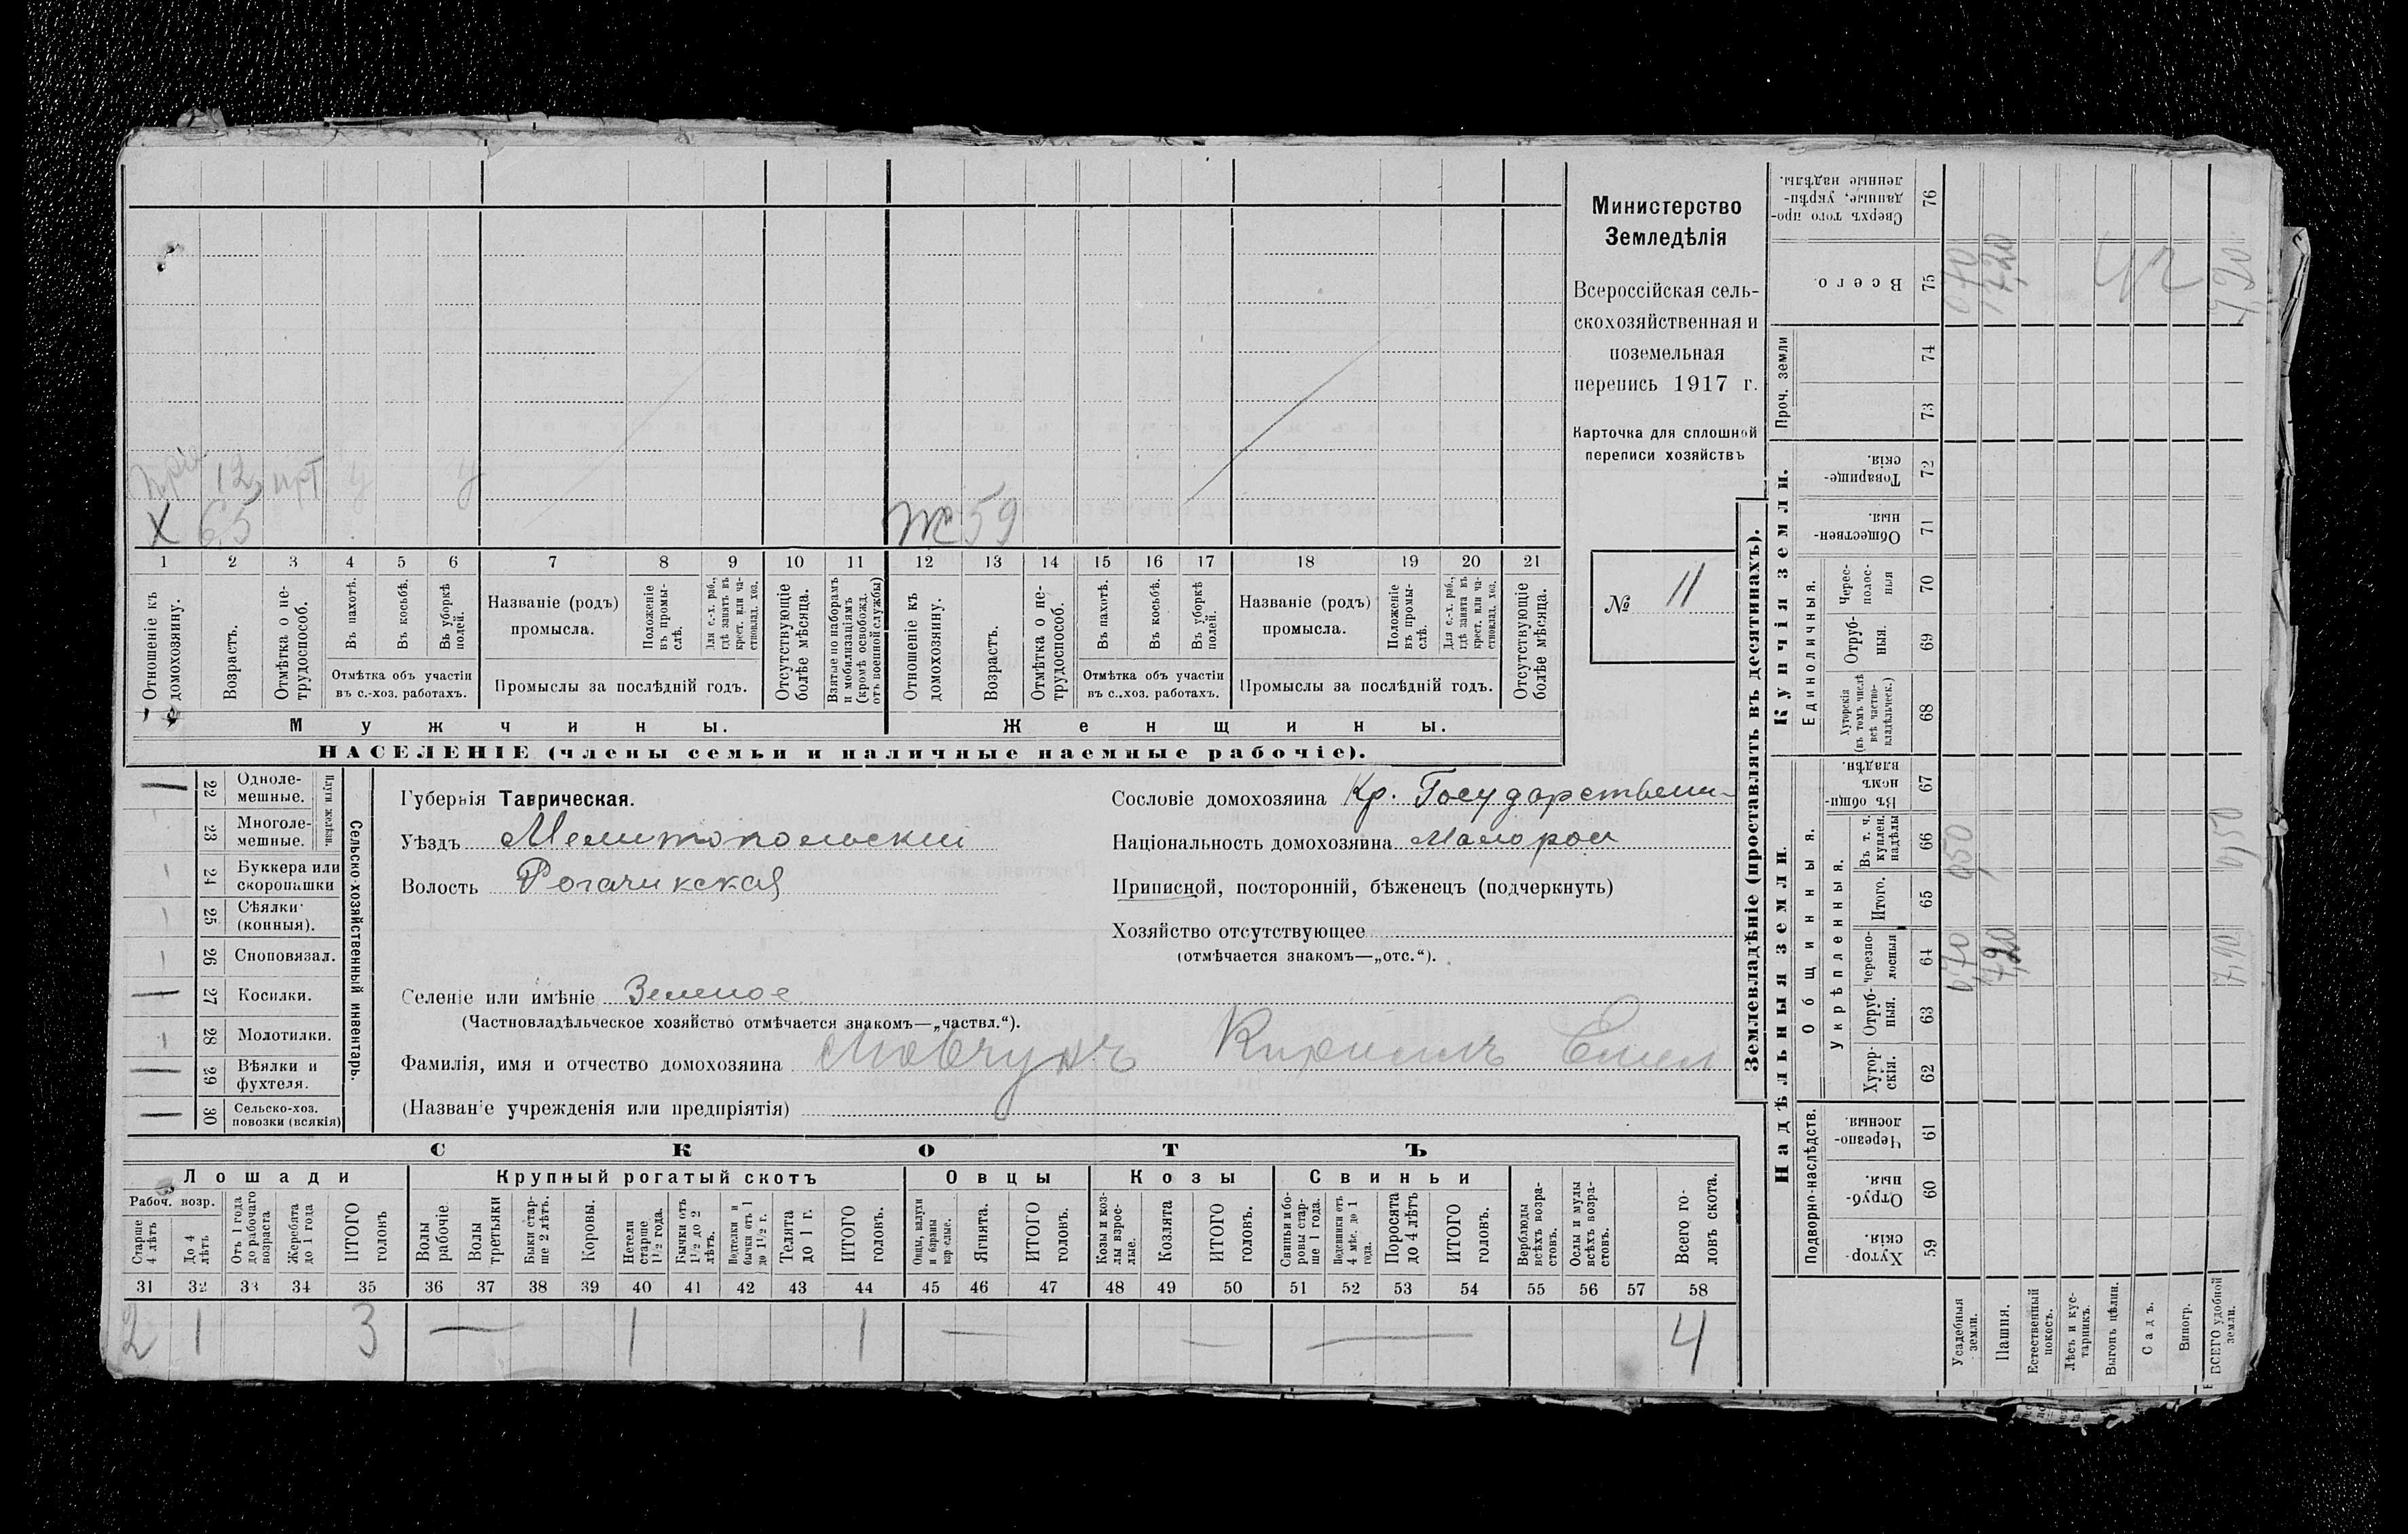 Министерство
Земледѣлія
Всероссійская сель-
скохозяйственная и
поземельная
перепись 1917 г.
Карточка для сплошной
переписи хозяйствъ
№ 11
12
Х 65
Ж 59
1 2 3 4 5 6 7 8 9 10 11 12 13 14 15 16 17 18 19 20 21
Отношеніе къ домохозяину.
Возрастъ.
Отмѣтка о не-трудоспособ.
Въ пахотѣ.
Въ косьбѣ.
Въ уборкѣ полей.
Отмѣтка объ участіи
въ с.-хоз. работахъ.
Названіе (родъ)
промысла.
Положеніе въ промы-слѣ.
Для с.-х. раб., гдѣ занятъ въ крест. или ча-стновлад. хоз.
Промыслы за послѣдній годъ.
Отсутствующіе болѣе мѣсяца.
Взятые по наборамъ и мобилизаціямъ (кромѣ освобожд. отъ военной службы)
Отношеніе къ домохозяину.
Возрастъ.
Отмѣтка о не-трудоспособ.
Въ пахотѣ.
Въ косьбѣ.
Въ уборкѣ полей.
Отмѣтка объ участіи
въ с.-хоз. работахъ.
Названіе (родъ)
промысла.
Положеніе въ промы-слѣ.
Для с.-х. раб., гдѣ занята въ крест. или ча-стновлад. хоз.
Промыслы за послѣдній годъ.
Отсутствующіе болѣе мѣсяца.
Мужчины.
Женщины.
НАСЕЛЕНІЕ (члены семьи и наличные наемные рабочіе).
Сельско-хозяйственный инвентарь.
Плуги желѣзн.
22 Одноле-мешные.
23 Многоле-мешные.
24 Буккера или скоропашки
25 Сѣялки (конныя).
26 Сноповязал.
27 Косилки.
28 Молотилки.
29 Вѣялки и фухтеля.
30 Сельско-хоз. повозки (всякія)
Губернія Таврическая.
Уѣздъ Мелитопольскій
Волость Рогачикская
Селеніе или имѣніе Зеленое
(Частновладѣльческое хозяйство отмѣчается знакомъ—„частвл.“).
Фамилія, имя и отчество домохозяина Мовчунъ Кириллъ
(Названіе учрежденія или предпріятія)
Сословіе домохозяина Кр. Государствен
Національность домохозяина Малорос
Приписной, посторонній, бѣженецъ (подчеркнуть)
Хозяйство отсутствующее
(отмѣчается знакомъ—„отс.“).
СКОТЪ
Лошади
Крупный рогатый скотъ
Овцы
Козы
Свиньи
Рабоч. возр.
Старше 4 лѣтъ
До 4 лѣтъ
Отъ 1 года до рабочаго возраста
Жеребята до 1 года
ИТОГО головъ
Волы рабочіе
Волы третьяки
Быки стар-ше 2 лѣтъ.
Коровы.
Нетели старше 1½ года.
Бычки отъ 1½ до 2 лѣтъ.
Подтелки и бычки отъ 1 до 1½ г.
Телята до 1 г.
ИТОГО головъ.
Овцы, валухи и бараны взрослые.
Ягнята.
ИТОГО головъ.
Козы и коз-лы взрос-лые.
Козлята
ИТОГО головъ.
Свиньи и бо-ровы стар-ше 1 года.
Подсвинки отъ 4 мѣс. до 1 года.
Поросята до 4 лѣтъ
ИТОГО головъ.
Верблюды всѣхъ возра-стовъ.
Ослы и мулы всѣхъ возра-стовъ.
Всего го-ловъ скота.
31 32 33 34 35 36 37 38 39 40 41 42 43 44 45 46 47 48 49 50 51 52 53 54 55 56 57 58
2 1 3 — 1 1 — — — 4
Землевладѣніе (проставлять въ десятинахъ).
Надѣльныя земли
Купчія земли.
Проч. земли
Подворно-наслѣдств.
Общинныя.
Укрѣпленныя.
Единоличныя.
Хутор-скія. 59
Отруб-ныя. 60
Черезпо-лосныя. 61
Хутор-скія. 62
Отруб-ныя. 63
Черезпо-лосныя 64
Итого. 65
Въ т. ч. куплен. надѣлы 66
Въ общи-номъ владѣн. 67
Хуторскія (въ томъ числѣ всѣ частно-владѣльческ.) 68
Отруб-ныя. 69
Черес-полос-ныя 70
Обществен-ныя. 71
Товарище-скія. 72
73
74
Всего. 75
Сверхъ того про-данные, укрѣп-ленные надѣлы. 76
Усадебныя земли.
Пашня.
Естественный покосъ.
Лѣсъ и кус-тарникъ.
Выгонъ цѣлин.
Садъ.
Виногр.
ВСЕГО удобной земли.
0,70
0,50